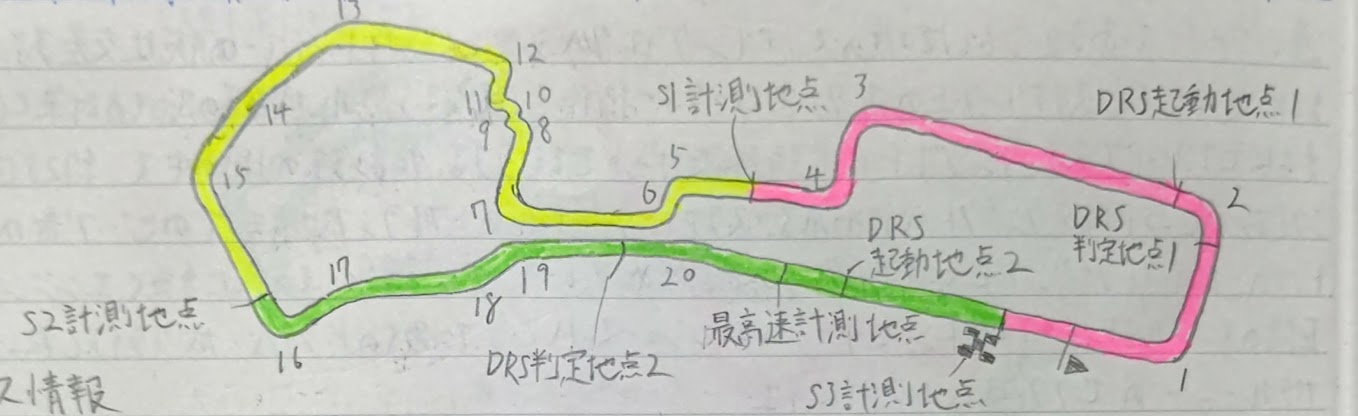 13
12
11 10
9 8
14
15
S1計測地点
3
DRS起動地点1
5
4
6
2
7
DRS
判定地点1
DRS
起動地点2
17
19
20
18
S2計測地点
16
DRS判定地点2
最高速計測地点
S3計測地点
1
ス情報